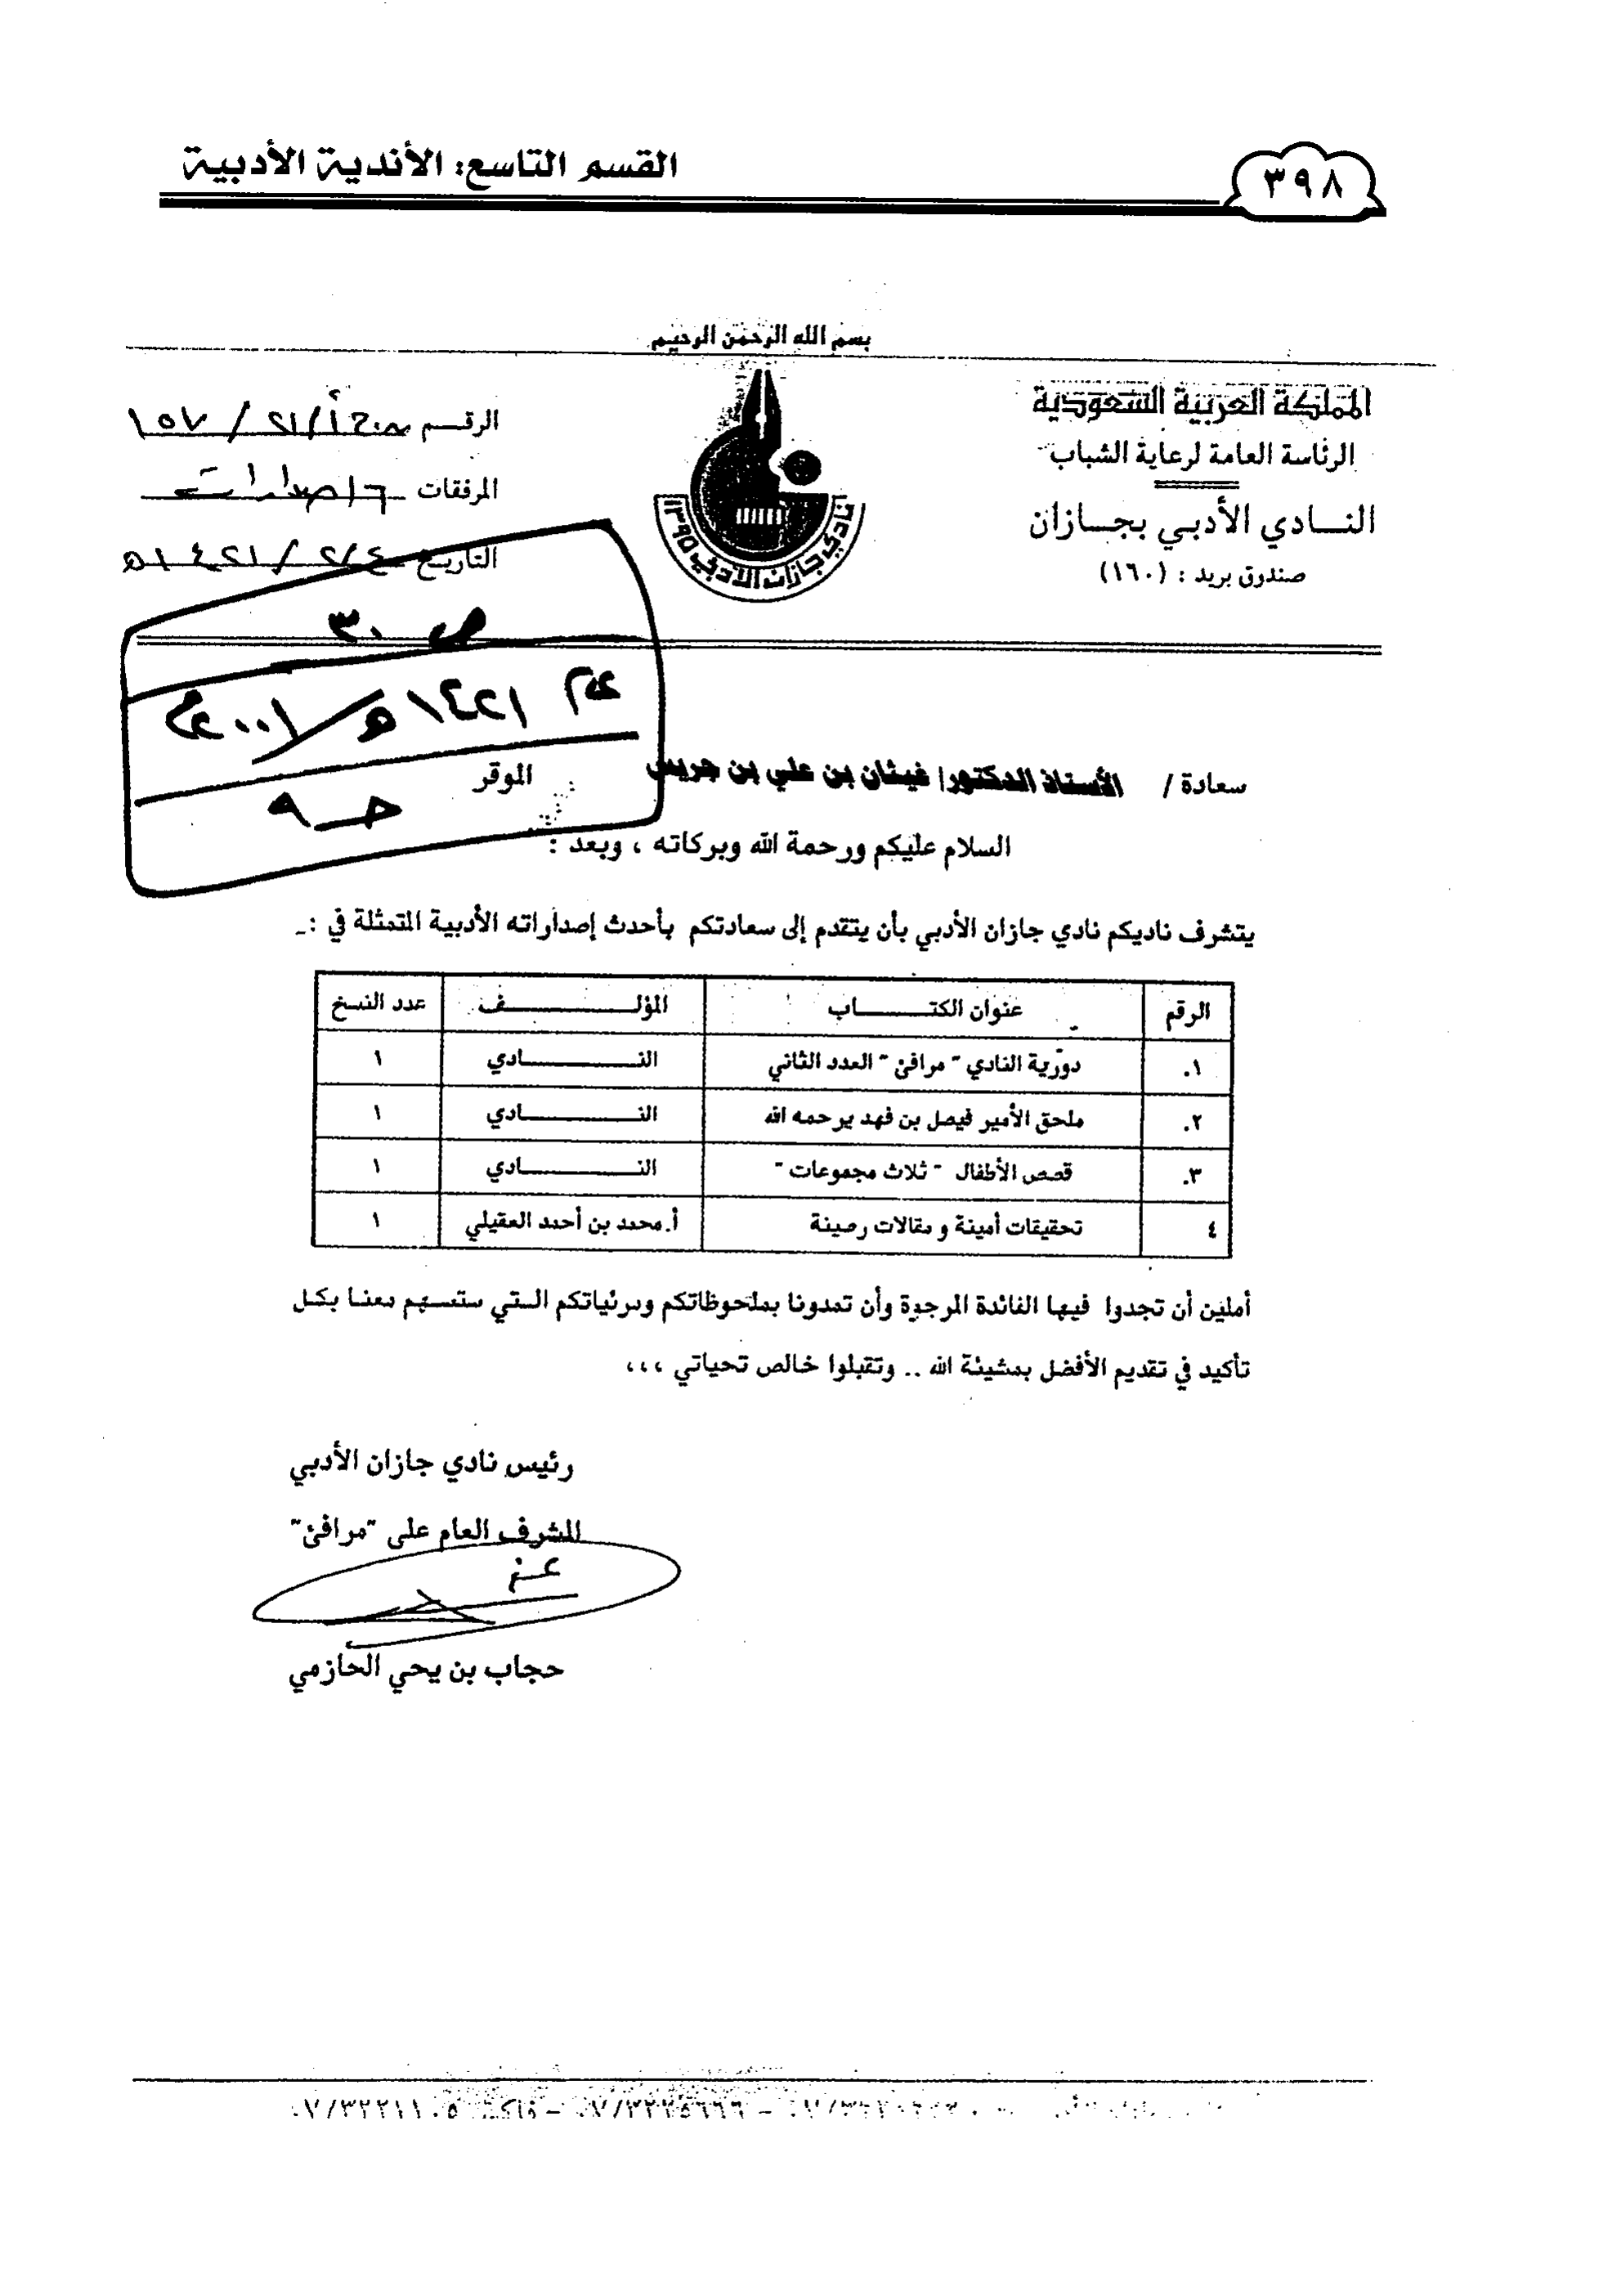 ٣٩٨
القسم التاسع: الأندية الأدبية
بسم الله الرحمن الرحيم
المملكة العربية السعودية
الرئاسة العامة لرعاية الشباب
النـــادي الأدبـي بجـــازان
صندوق بريد : (١٦٠)
نادي جازان الأدبي ١٣٩٥
الرقـــم / ٢١ / ١٥٧
المرفقات ٦ إصدارات
التاريـخ ٤/٢ / ١٤٢١هـ
ص ٣٠
عام ١٤٢١هـ/٢٠٠١م
جـ ٩
سعادة / الأستاذ الدكتور/ غيثان بن علي بن جريس الموقر
السلام عليكم ورحمة الله وبركاته ، وبعد :
يتشرف ناديكم نادي جازان الأدبي بأن يتقدم إلى سعادتكم بأحدث إصداراته الأدبية المتمثلة في :ـ
الرقم عنوان الكتــــــاب المؤلـــــــــــف عدد النسخ
١. دورية النادي "مرافئ" العدد الثاني النـــــــــــادي ١
٢. ملحق الأمير فيصل بن فهد يرحمه الله النـــــــــــادي ١
٣. قصص الأطفال "ثلاث مجموعات" النـــــــــــادي ١
٤ تحقيقات أمينة و مقالات رصينة أ.محمد بن أحمد العقيلي ١
أملين أن تجدوا فيها الفائدة المرجوة وأن تمدونا بملحوظاتكم ومرئياتكم الـتي ستسهم معنـا بكـل
تأكيد في تقديم الأفضل بمشيئة الله .. وتقبلوا خالص تحياتي ،،،
رئيس نادي جازان الأدبي
المشرف العام على "مرافئ"
حجاب بن يحي الحازمي
٠٧/٣٢٢٥٦٦٦ – فاكس ٠٧/٣٢٢١١٠٥